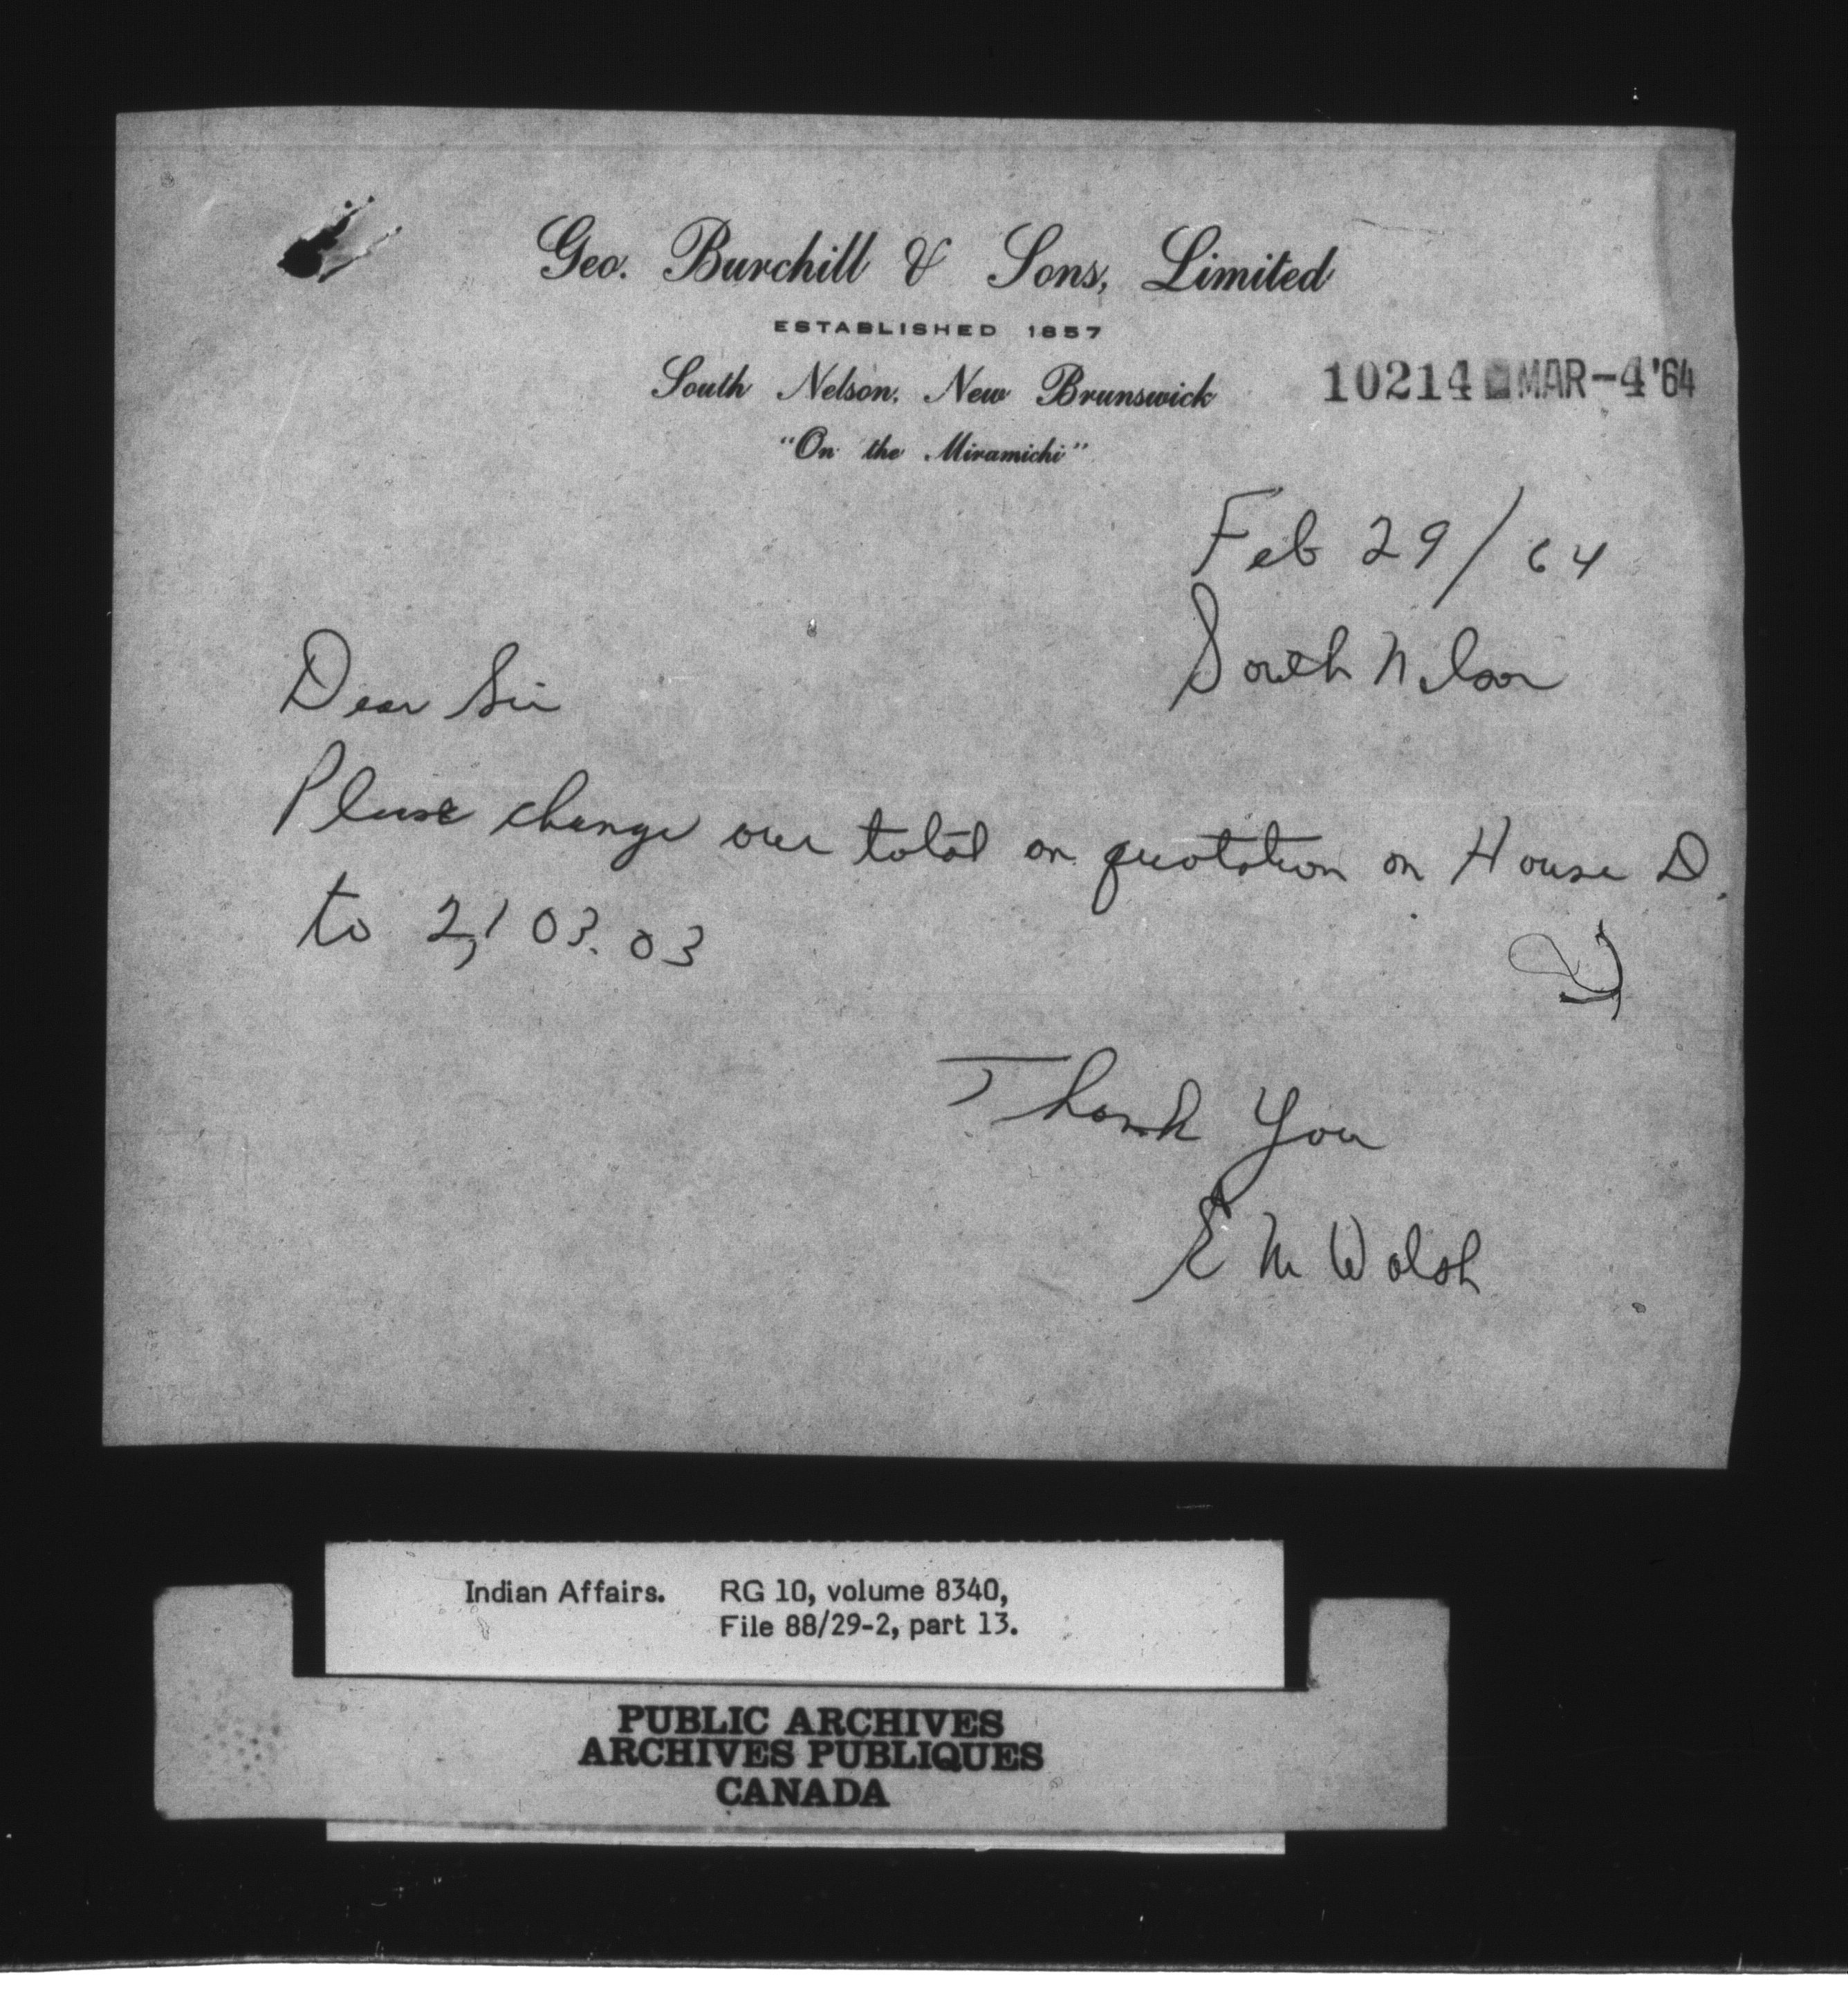 Geo. Burchill & Sons, Limited
ESTABLISHED 1857
South Nelson, New Brunswick
10214 MAR-4'64
"On the Miramichi"
Feb 29/64
South Nelson
Dear Sir
Please change our total on quotation on House D.
to 2,103.03
Thank You
E M Walsh
Indian Affairs. RG 10, volume 8340,
File 88/29-2, part 13.
PUBLIC ARCHIVES
ARCHIVES PUBLIQUES
CANADA